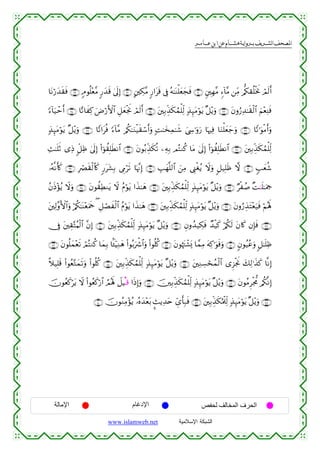 المصحف الشريف برواية هشام عن ابن عامر
أَلَمْ نَخْلُقكُّم مِّن مَّآءٍ مَّهِينٍ فَجَعَلْنَٰهُ فِى قَرَارٍ مَّكِينٍ إِلَىٰ قَدَرٍ مَّعْلُومٍ فَقَدَّرْنَا
فَنِعْمَ ٱلْقَٰدِرُونَ وَيْلٌ يَوْمَئِذٍ لِّلْمُكَذِّبِينَ أَلَمْ نَجْعَلِ ٱلْأَرْضَ كِفَاتًا أَحْيَآءً
وَأَمْوَٰتًا وَجَعَلْنَا فِيهَا رَوَٰسِىَ شَٰمِخَٰتٍ وَأَسْقَيْنَٰكُم مَّآءً فُرَاتًا وَيْلٌ يَوْمَئِذٍ
لِّلْمُكَذِّبِينَ ٱنطَلِقُوٓا۟ إِلَىٰ مَا كُنتُم بِهِۦ تُكَذِّبُونَ ٱنطَلِقُوٓا۟ إِلَىٰ ظِلٍّ ذِى ثَلَٰثِ
شُعَبٍ لَّا ظَلِيلٍ وَلَا يُغْنِى مِنَ ٱللَّهَبِ إِنَّهَا تَرْمِى بِشَرَرٍ كَٱلْقَصْرِ كَأَنَّهُۥ
جِمَٰلَٰتٌ صُفْرٌ وَيْلٌ يَوْمَئِذٍ لِّلْمُكَذِّبِينَ هَٰذَا يَوْمُ لَا يَنطِقُونَ وَلَا يُؤْذَنُ
لَهُمْ فَيَعْتَذِرُونَ وَيْلٌ يَوْمَئِذٍ لِّلْمُكَذِّبِينَ هَٰذَا يَوْمُ ٱلْفَصْلِ جَمَعْنَٰكُمْ وَٱلْأَوَّلِينَ
فَإِن كَانَ لَكُمْ كَيْدٌ فَكِيدُونِ وَيْلٌ يَوْمَئِذٍ لِّلْمُكَذِّبِينَ إِنَّ ٱلْمُتَّقِينَ فِى
ظِلَٰلٍ وَعِيُونٍ وَفَوَٰكِهَ مِمَّا يَشْتَهُونَ كُلُوا۟ وَٱشْرَبُوا۟ هَنِيٓـًٔا بِمَا كُنتُمْ تَعْمَلُونَ
إِنَّا كَذَٰلِكَ نَجْزِى ٱلْمُحْسِنِينَ وَيْلٌ يَوْمَئِذٍ لِّلْمُكَذِّبِينَ كُلُوا۟ وَتَمَتَّعُوا۟ قَلِيلًا
إِنَّكُم مُّجْرِمُونَ وَيْلٌ يَوْمَئِذٍ لِّلْمُكَذِّبِينَ وَإِذَا قِيلَ لَهُمُ ٱرْكَعُوا۟ لَا يَرْكَعُونَ
وَيْلٌ يَوْمَئِذٍ لِّلْمُكَذِّبِينَ فَبِأَىِّ حَدِيثٍۭ بَعْدَهُۥ يُؤْمِنُونَ
الحرف المخالف لحفص الإدغام الإمالة
الشبكة الإسلامية www.islamweb.net